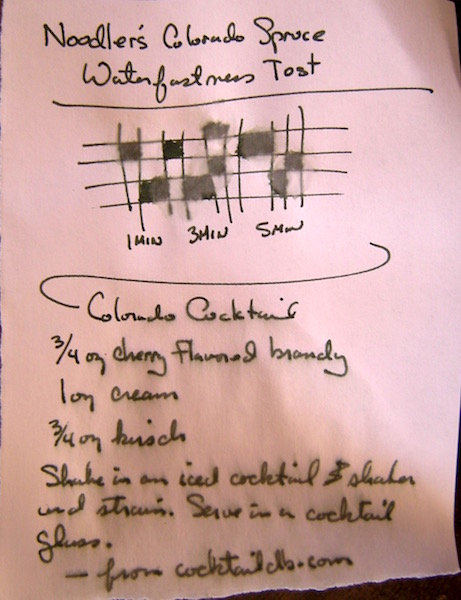 Noodler's Colorado Spruce
Waterfastness Test
1 MIN 3 MIN 5 MIN
Colorado Cocktail
3/4 oz cherry flavored brandy
1 oz cream
3/4 oz kirsch
Shake in an iced cocktail shaker
and strain. Serve in a cocktail
glass.
— from cocktaildb.com